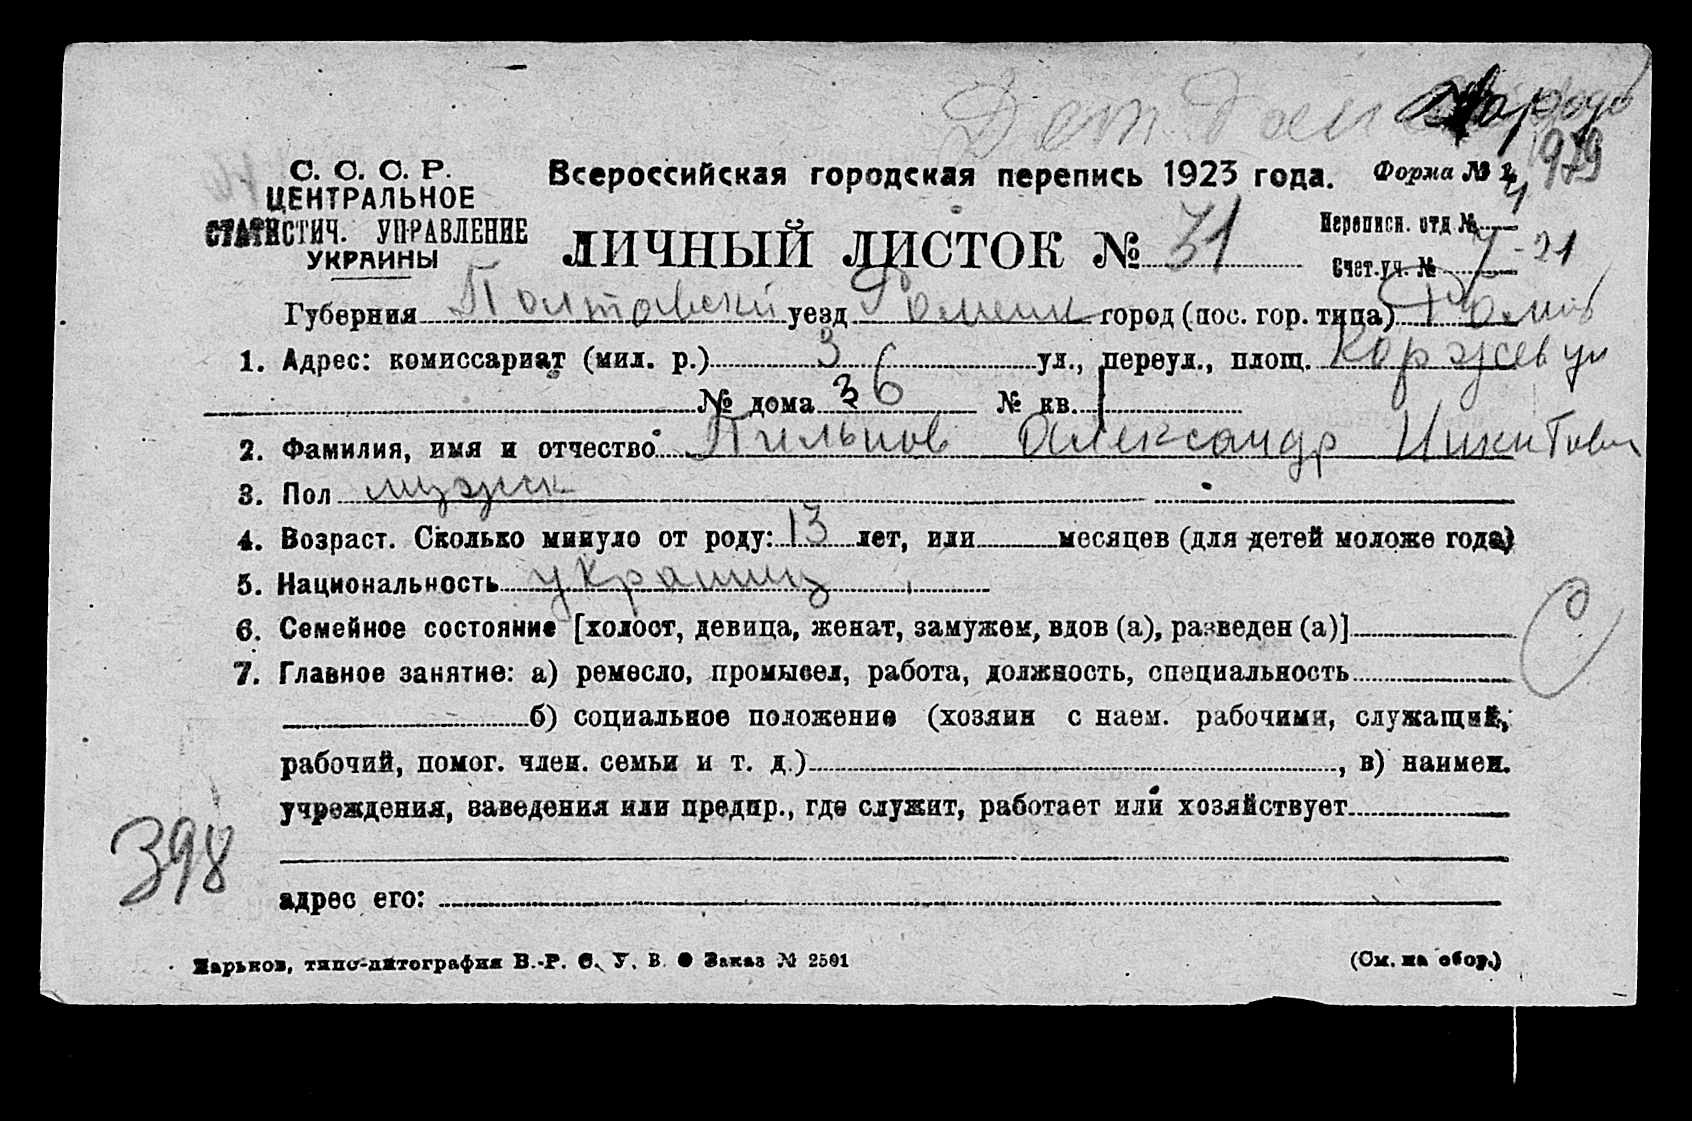 Дет дом
1979
С. С. С. Р.
ЦЕНТРАЛЬНОЕ
СТАТИСТИЧ. УПРАВЛЕНИЕ
УКРАИНЫ
Всероссийская городская перепись 1923 года.
Форма № 2
ЛИЧНЫЙ ЛИСТОК № 31
Переписн. отд №
Счет.уч. № 7-21
Губерния Полтавский уезд Роменск город (пос. гор. типа) Ромны
1. Адрес: комиссариат (мил. р.) 3 ул., переул., площ. Коржев ул
№ дома 36 № кв.
2. Фамилия, имя и отчество Пильнов Александр Никитович
3. Пол мужск
4. Возраст. Сколько минуло от роду: 13 лет, или месяцев (для детей моложе года)
5. Национальность украинц
6. Семейное состояние [холост, девица, женат, замужем, вдов (а), разведен (а)]
7. Главное занятие: а) ремесло, промысел, работа, должность, специальность
б) социальное положение (хозяин с наем. рабочими, служащий,
рабочий, помог. член. семьи и т. д.), в) наимен.
учреждения, заведения или предпр., где служит, работает или хозяйствует
398
адрес его:
Харьков, типо-литография В.-Р. С. У. В. Заказ № 2501
(См. на обор.)